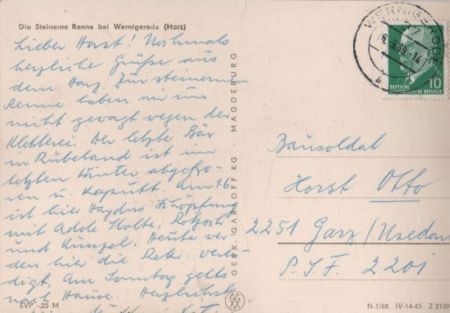 Die Steinerne Renne bei Wernigerode (Harz)
Lieber Horst! Nochmals
herzliche Grüße aus
dem Harz. Zur steinernen
Renne haben wir uns
nicht gewagt wegen der
Kletterei. Der letzte Bär
in Rübeland ist im
letzten Winter abgefro-
ren u. kaputt. Am 16.
ist hier Haydns Schöpfung
mit Adele Stolte, Rotzsch
und Künzel. Heute wer
den hier die Rek. verei
digt. Am Sonntag gehts
nach Hause. Herzlichst
EVP -,25 M
GEBR. GARLOFF KG · MAGDEBURG
WERNIGERODE
DEUTSCHE
DEMOKRATISCHE REPUBLIK
10
Bausoldat
Horst Otto
2251 Garz/Usedom
P.S.F. 2201
N 1/60 IV-14-45 Z 2139